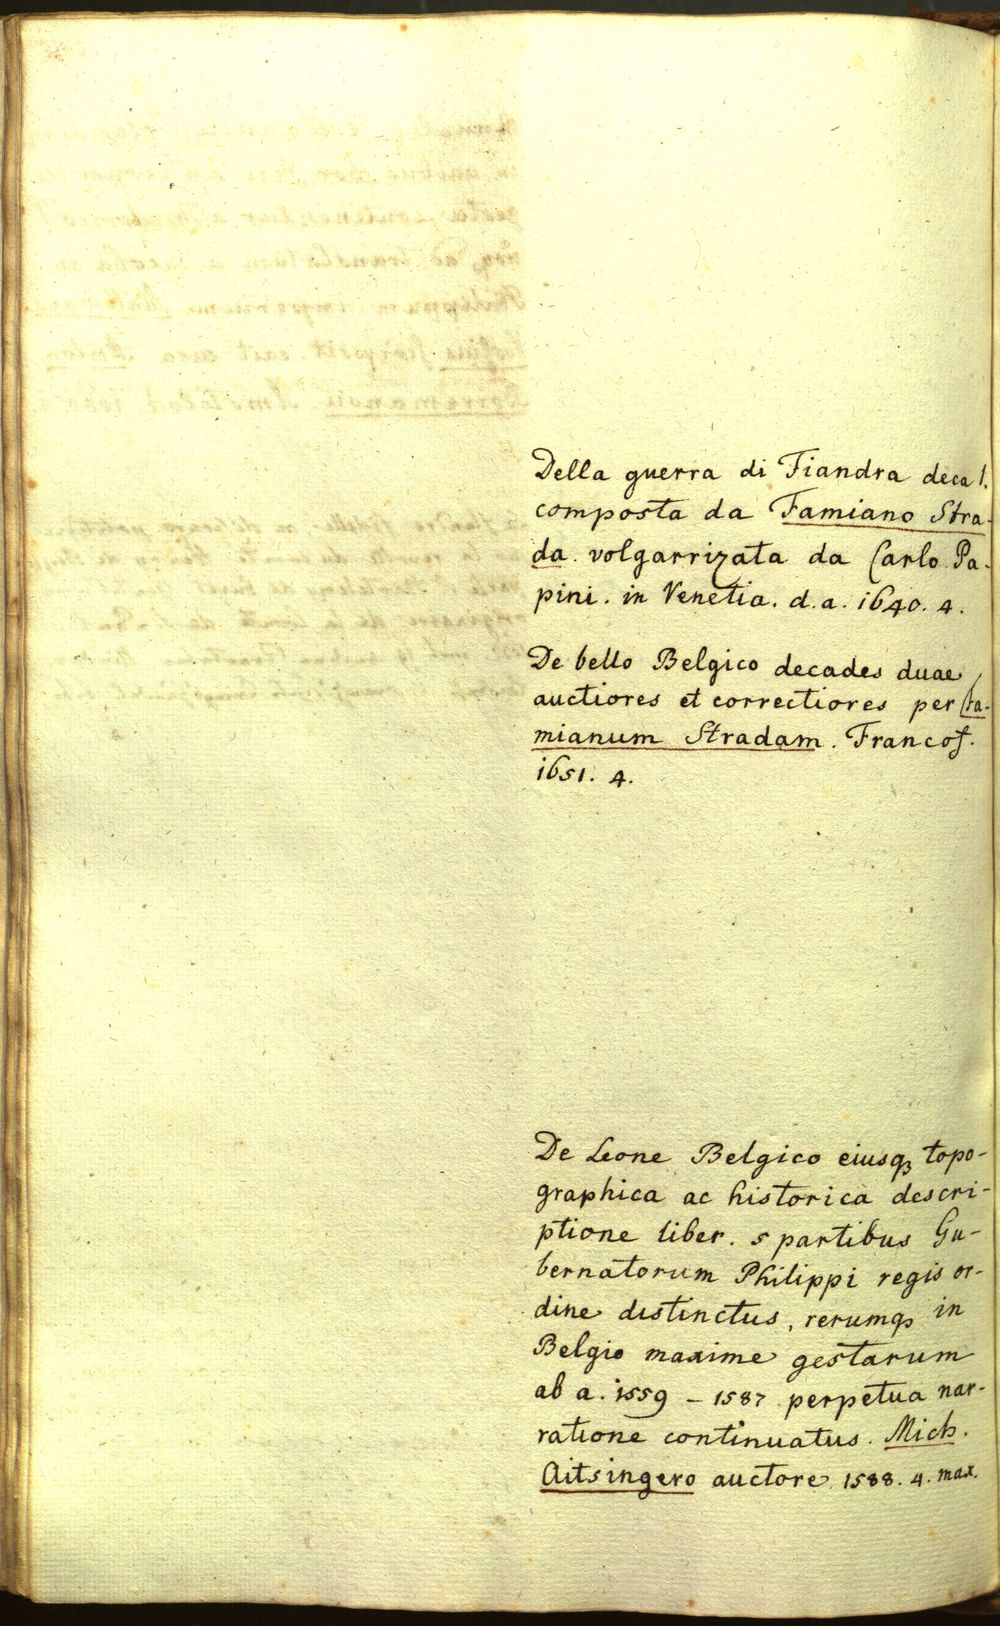 Della guerra di Fiandra deca 1.
composta da Famiano Stra-
da. volgarrizata da Carlo Pa-
pini. in Venetia. d. a. 1640. 4.
De bello Belgico decades duae
auctiores et correctiores per Fa-
mianum Stradam. Francof.
1651. 4.
De Leone Belgico eiusq3 topo-
graphica ac historica descri-
ptione liber. 5 partibus Gu-
bernatorum Philippi regis or-
dine distinctus, rerumq3 in
Belgio maxime gestarum
ab a. 1559 - 1587 perpetua nar-
ratione continuatus. Mich.
Aitsingero auctore 1588. 4. max.